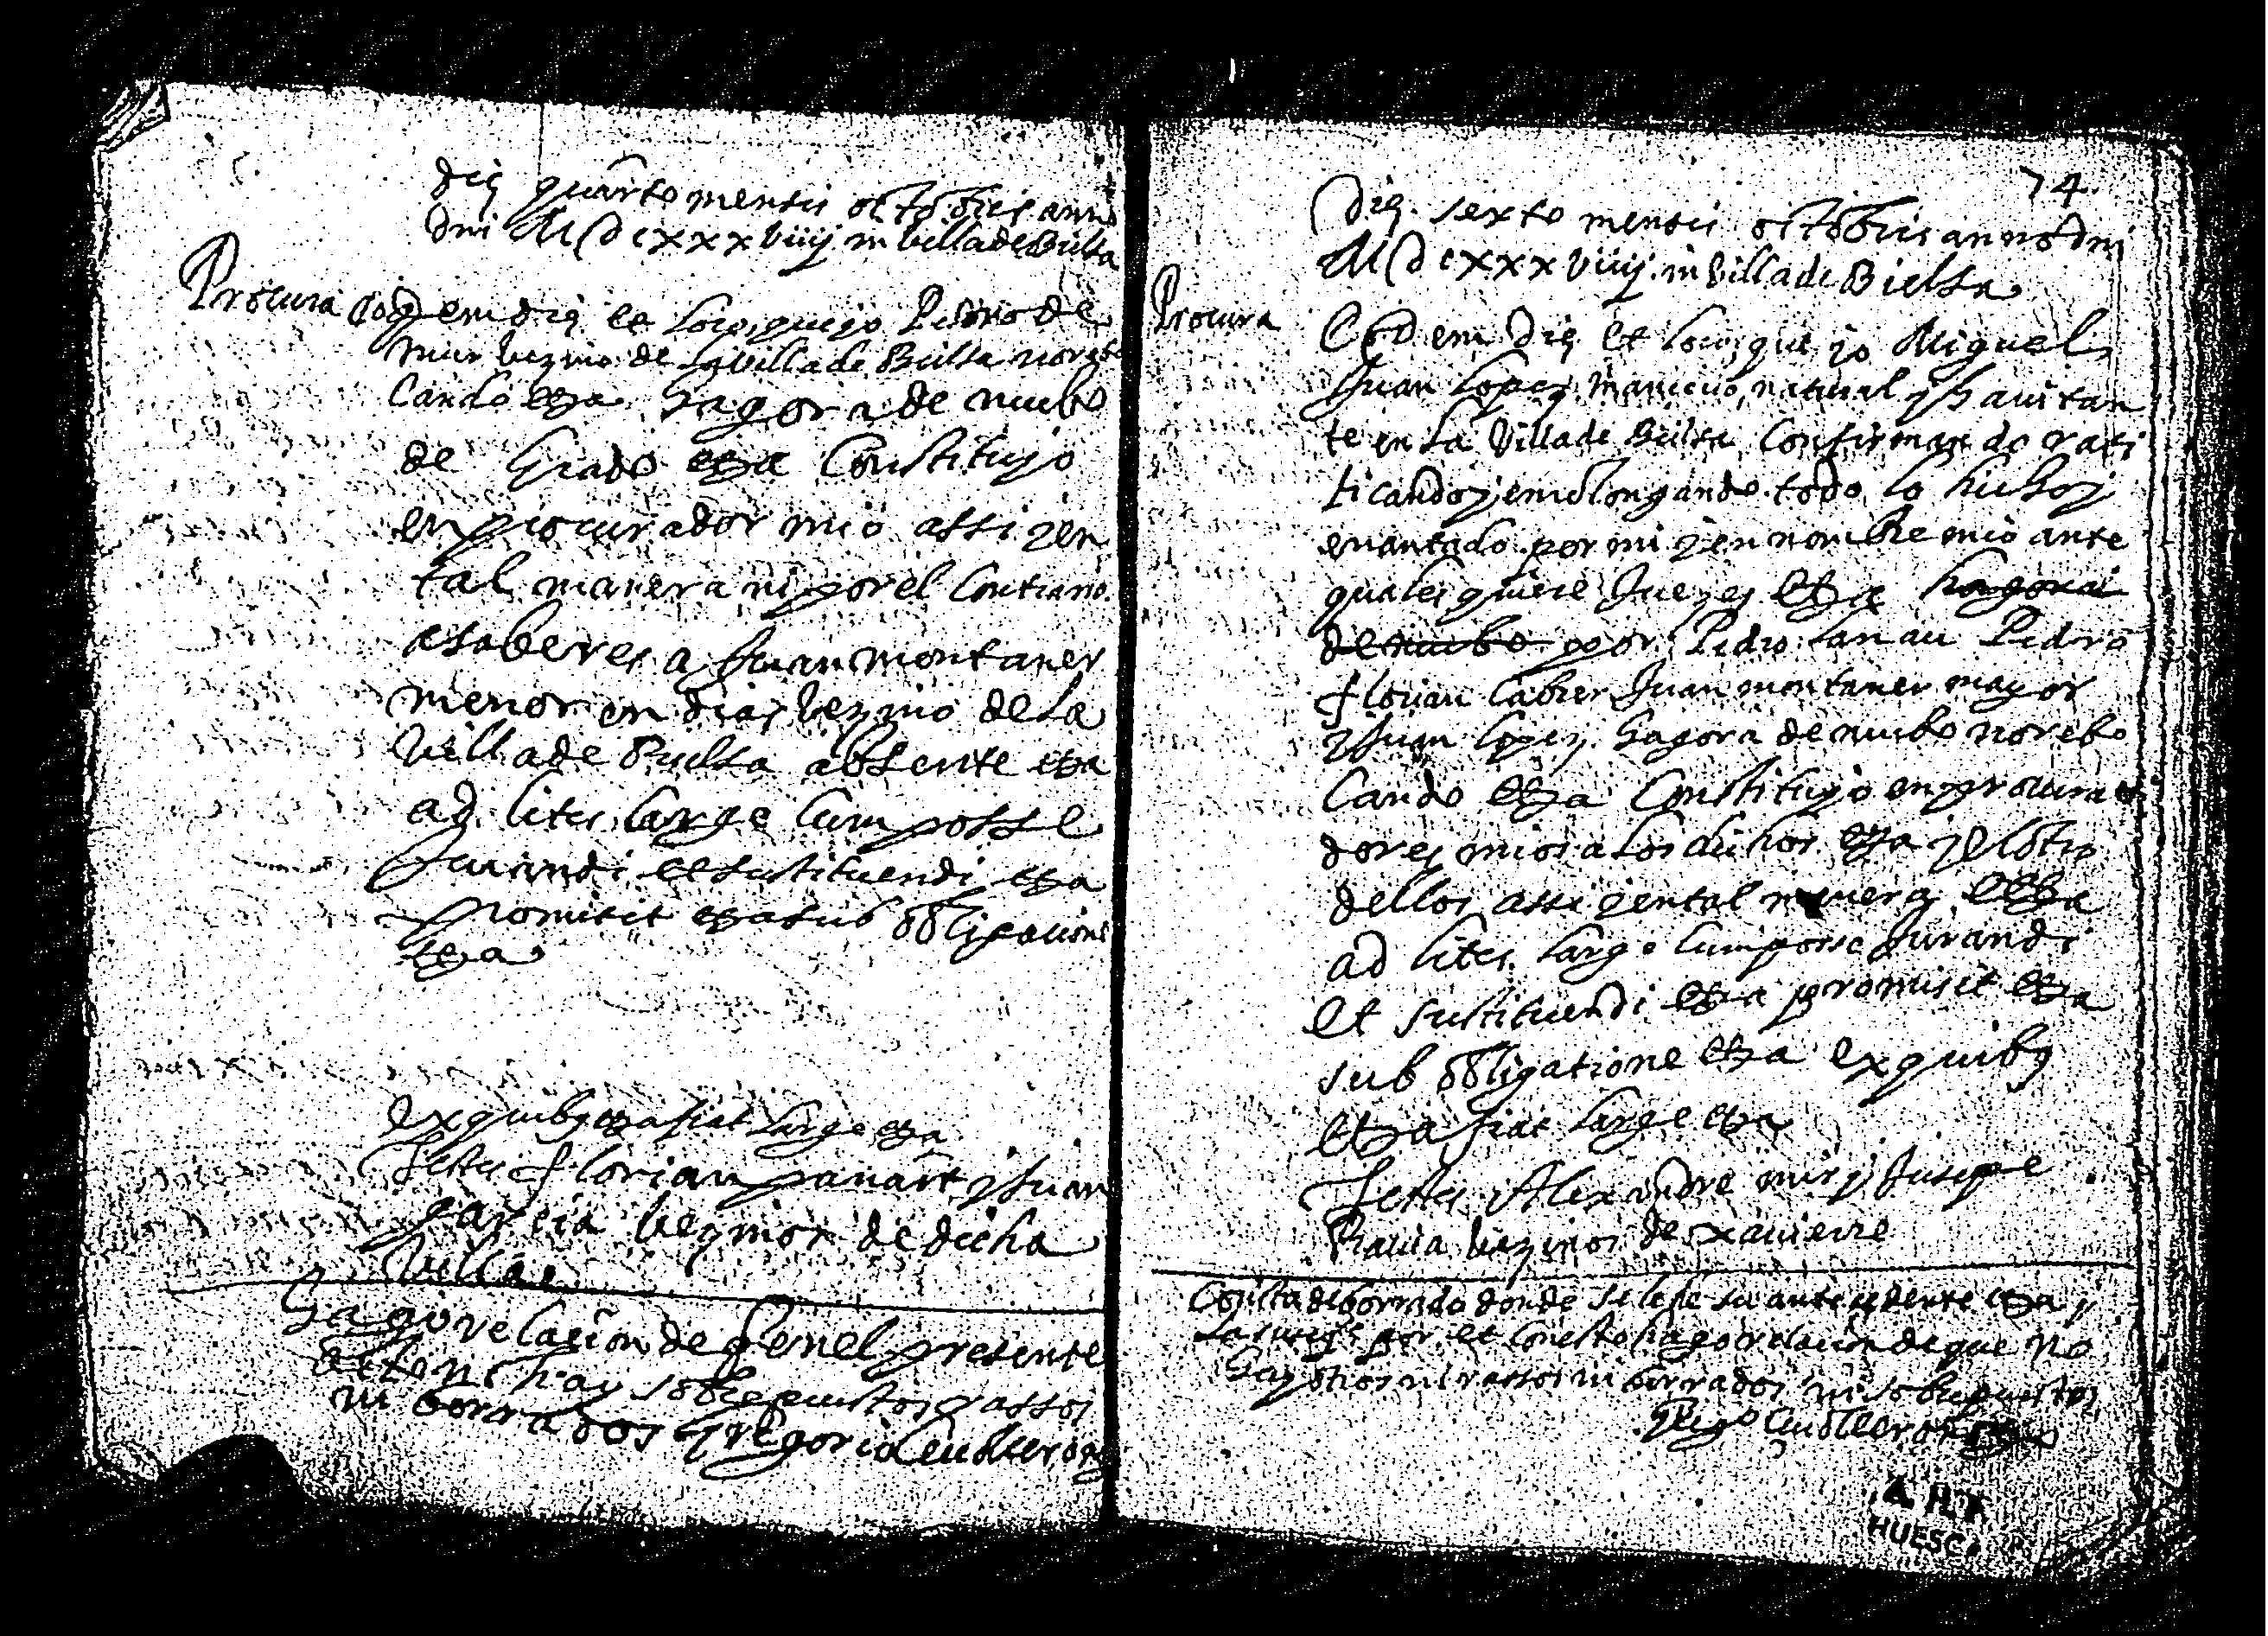 die quarto mensis octobris anno
dni MDCxxxviiij in villa de Bielsa
Procura
Eodem die et loco que yo Pedro de
mur vezino de la villa de Bielsa no revo
cando etza hagora de nuebo
de Grado etza Constituyo
en procurador mio assi y en
tal manera ni por el Contrario
a saber es a Juan montaner
menor en dias vezino de la
Villa de Bielsa absente etza
ad lites large cum posse
Jurandi et sustituendi etza
promisit etza sub obligacione
etza
ex quibus etza fiat large etza
Testes Florian panart y Juan
garcia vezinos de dicha
Villa
Hago relacion de que en el presente
acto no hay sobrepuestos rassos
ni borrados Gregorio
74
Die sexto mensis octobris anno dni
MDCxxxviiij in villa de Bielsa
Procura
Eodem die et loco que yo Miguel
Juan Lopez mancevo natural y havitan
te en la Villa de Bielsa Confirmando rati
ficando y emologando todo lo hecho y
enantado por mi y en nombre mio ante
qualesquiere Juezes etza hagora
de nuebo por Pedro lanau Pedro
florian Cabrer Juan montaner mayor
y Juan Lopez hagora de nuebo no rebo
cando etza Constituyo en procura
dores mios a los dichos etza y el otro
dellos assi y en tal manera etza
ad lites large cum posse Jurandi
et sustituendi etza promisit etza
sub obligatione etza ex quibus
etza fiat large etza
Testes Alexandre mir y Jusepe
vezinos de xavierre
Consta de borrado donde se lehe su antecedente etza y
hago relacion de que no
hay otros ni rassos ni borrados ni sobrepuestos
A.H.P.
HUESCA